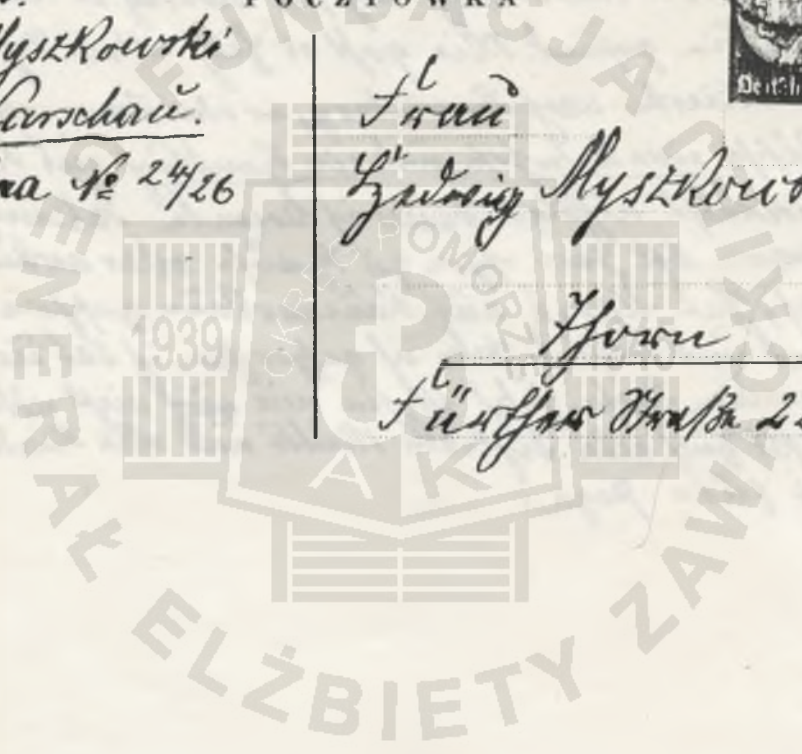 POCZTÓWKA
Myszkowski
Warschau.
na № 24/26
Frau
Hedwig Myszkows
Thorn
Fürther Straße 22
Deutsch
FUNDACJA
GENERAŁ ELŻBIETY ZAWACKIEJ
OKRĘG POMORZE
1939
1945
AK